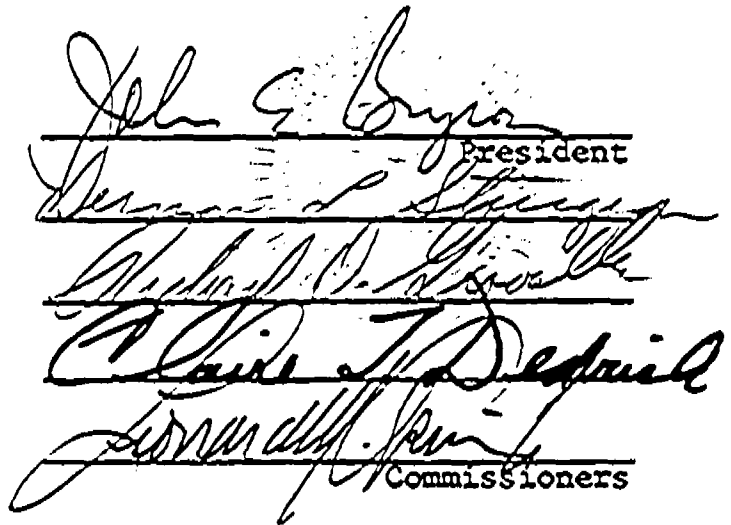 John E Bryson
President
Vernon L. Sturgeon
Richard D. Gravelle
Claire T. Dedrick
Leonard M.
Commissioners